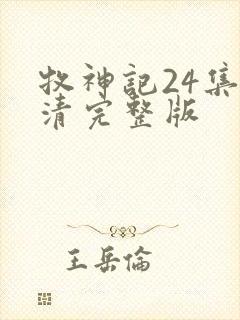 牧神記24集
清完整版
王岳倫